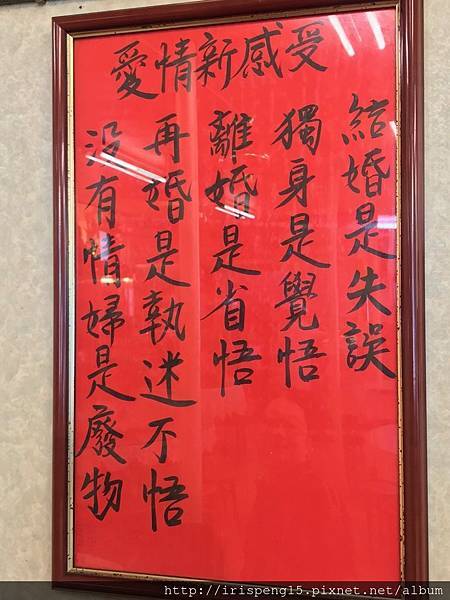 愛情新感受
結婚是失誤
獨身是覺悟
離婚是省悟
再婚是執迷不悟
没有情婦是廢物
http://irispeng15.pixnet.net/album